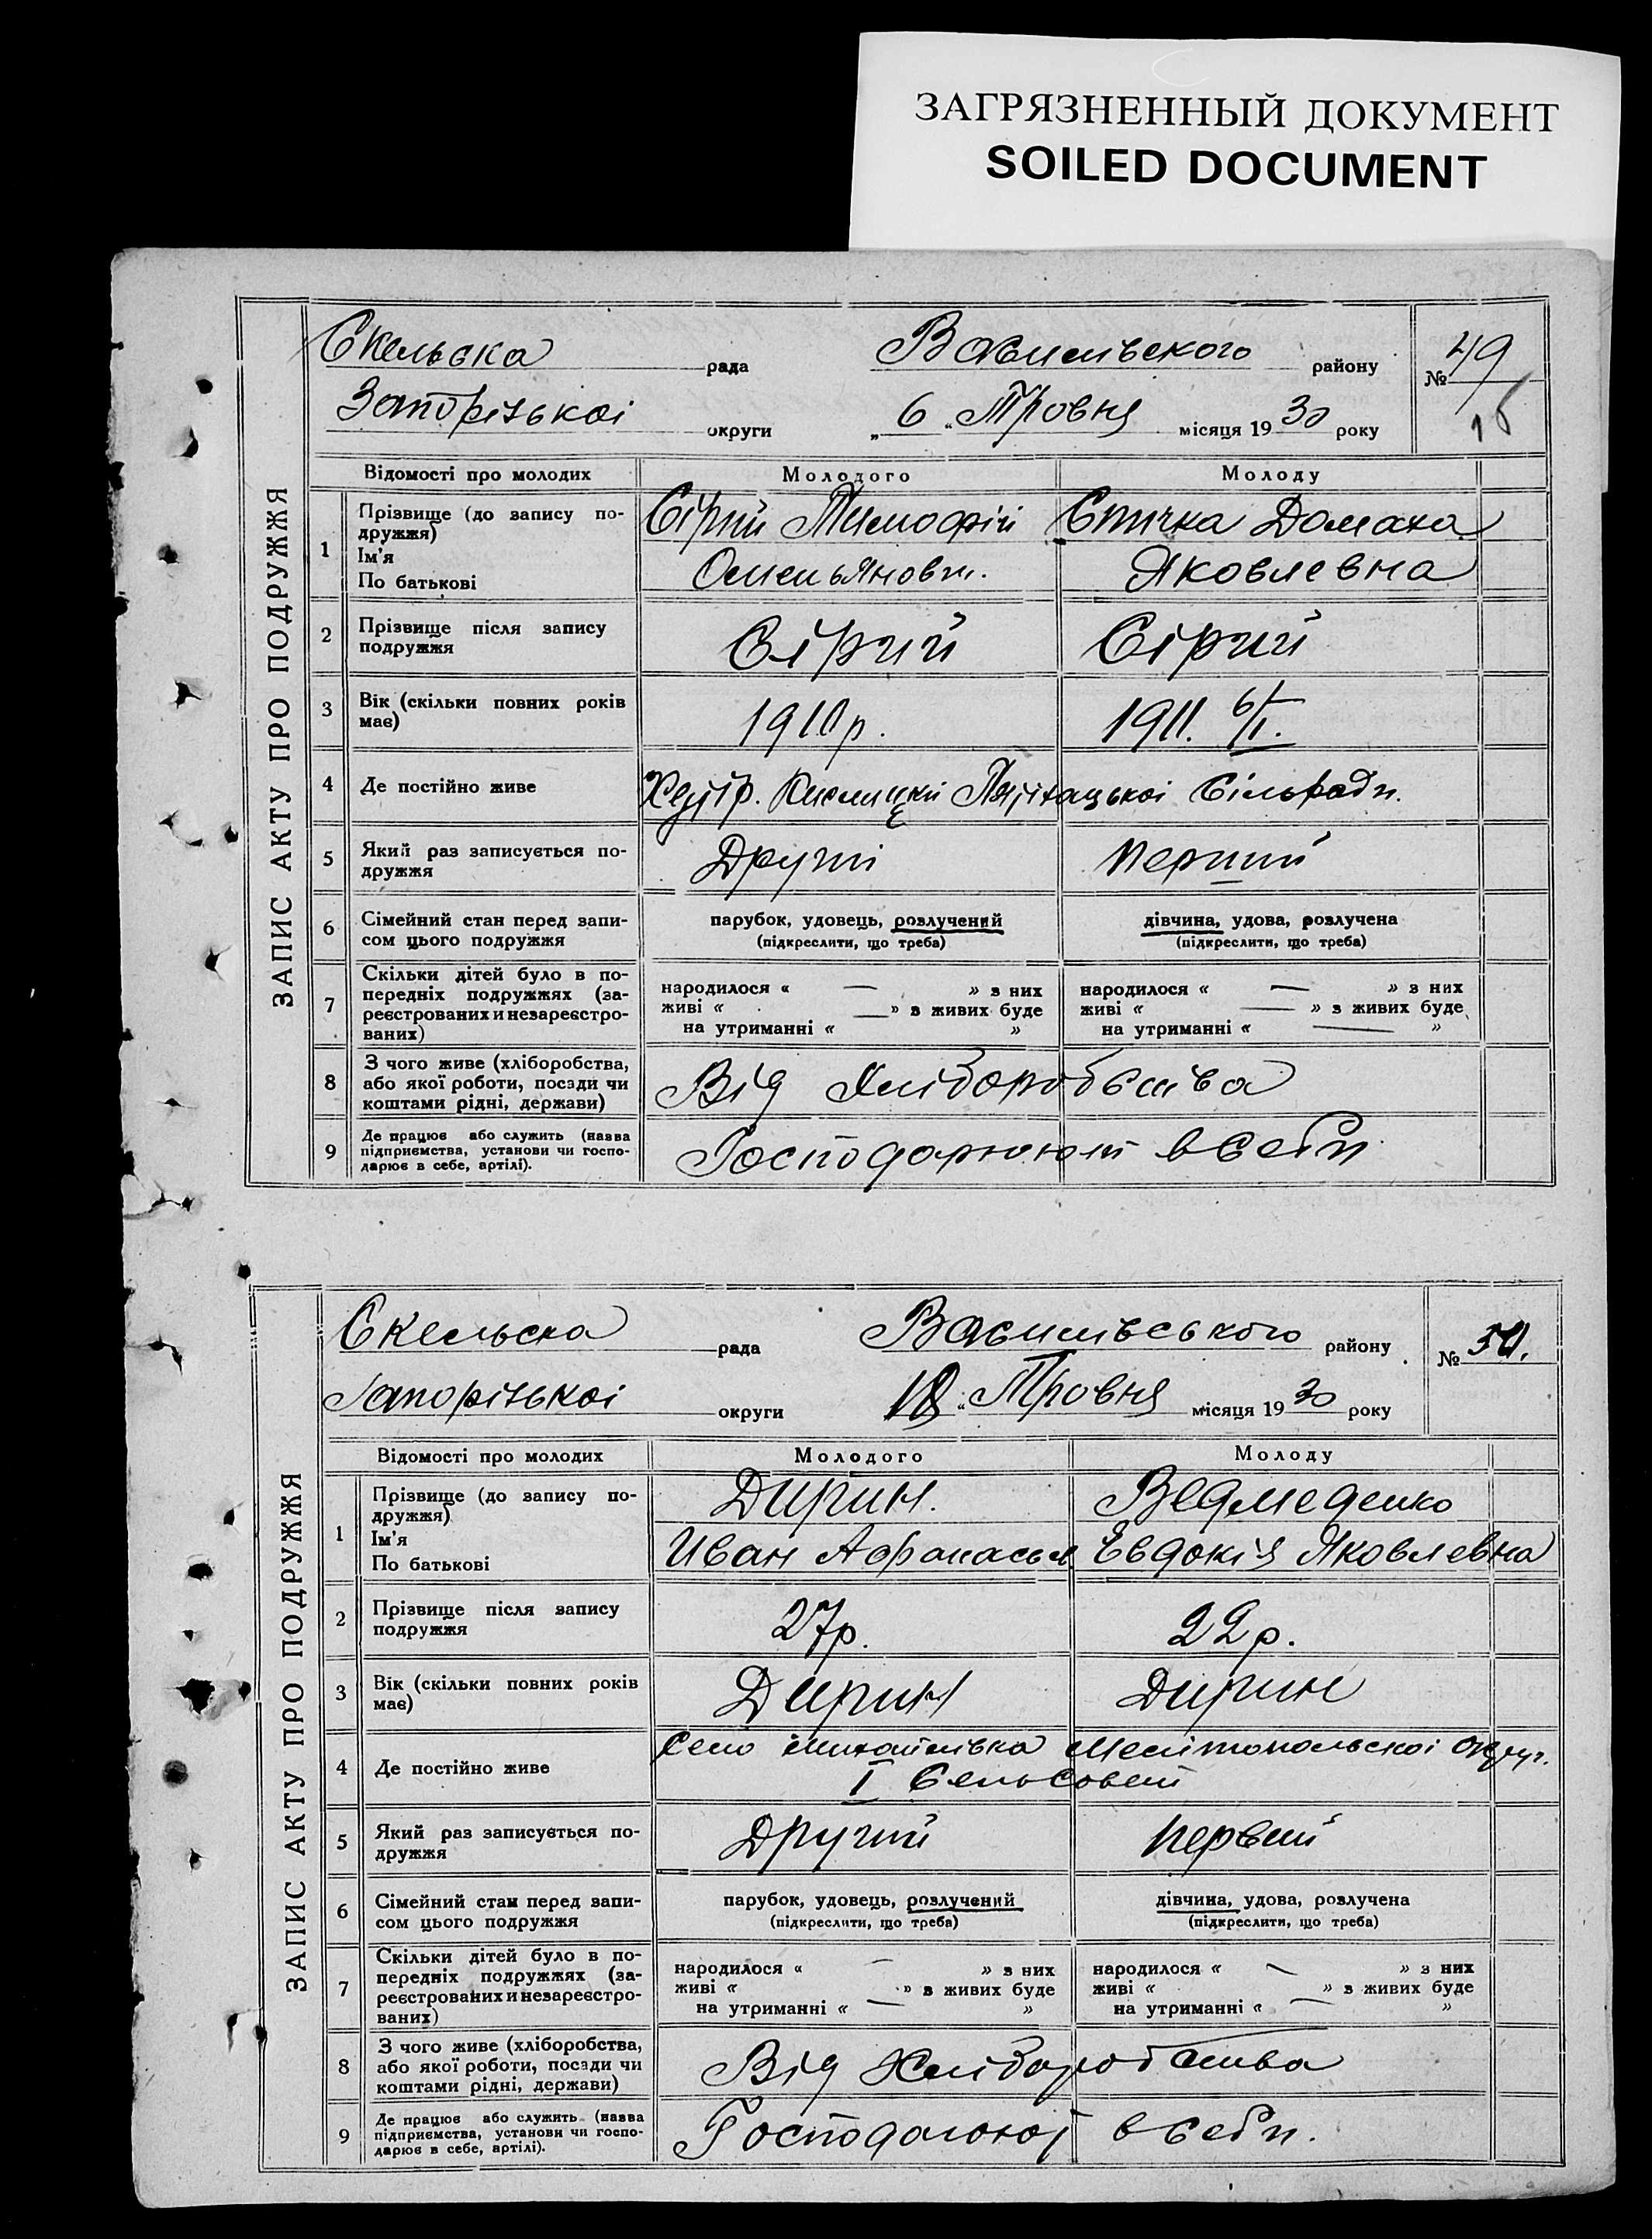 ЗАГРЯЗНЕННЫЙ ДОКУМЕНТ
SOILED DOCUMENT
ЗАПИС АКТУ ПРО ПОДРУЖЖЯ
Скельска рада Васильвского району № 49
Запорізькоі округи „ 6 “ Тровня місяця 1930 року
Відомості про молодих Молодого Молоду
1 Прізвище (до запису по- Сірий Тимофій Спичка Домаха
дружжя)
Ім'я Омельянович. Яковлевна
По батькові
2 Прізвище після запису Сірий Сірий
подружжя
3 Вік (скільки повних років 1910р. 1911. 6/I.
має)
4 Де постійно живе Сільради.
5 Який раз записується по- Другі перший
дружжя
6 Сімейний стан перед запи- парубок, удовець, розлучений дівчина, удова, розлучена
сом цього подружжя (підкреслити, що треба) (підкреслити, що треба)
7 Скільки дітей було в по-
передніх подружжях (за- народилося « — » з них народилося « — » з них
реєстрованих и незареєстро- живі « — » з живих буде живі « — » з живих буде
ваних) на утриманні « » на утриманні « — »
8 З чого живе (хліборобства, Від Хліборобства
або якої роботи, посади чи
коштами рідні, держави)
9 Де працює або служить (назва Господорюют в себи
підприємства, установи чи госпо-
дарює в себе, артілі).
ЗАПИС АКТУ ПРО ПОДРУЖЖЯ
Скельска рада Васильвського району № 50.
Запорізькоі округи 18 “ Тровня місяця 1930 року
Відомості про молодих Молодого Молоду
1 Прізвище (до запису по- Дирин. Ведмеденко
дружжя)
Ім'я Иван Афонасьв Евдокія Яковлевна
По батькові
2 Прізвище після запису 27р. 22р.
подружжя
3 Вік (скільки повних років Дирин Дирин
має)
4 Де постійно живе Село Михайлівка Мелітопольскоі округ.
I Сельсовет
5 Який раз записується по- Другий первий
дружжя
6 Сімейний стан перед запи- парубок, удовець, розлучений дівчина, удова, розлучена
сом цього подружжя (підкреслити, що треба) (підкреслити, що треба)
7 Скільки дітей було в по-
передніх подружжях (за- народилося « — » з них народилося « — » з них
реєстрованих и незареєстро- живі « » з живих буде живі « » з живих буде
ваних) на утриманні « — » на утриманні « — »
8 З чого живе (хліборобства, Від Хліборобства
або якої роботи, посади чи
коштами рідні, держави)
9 Де працює або служить (назва в себи.
підприємства, установи чи госпо-
дарює в себе, артілі).